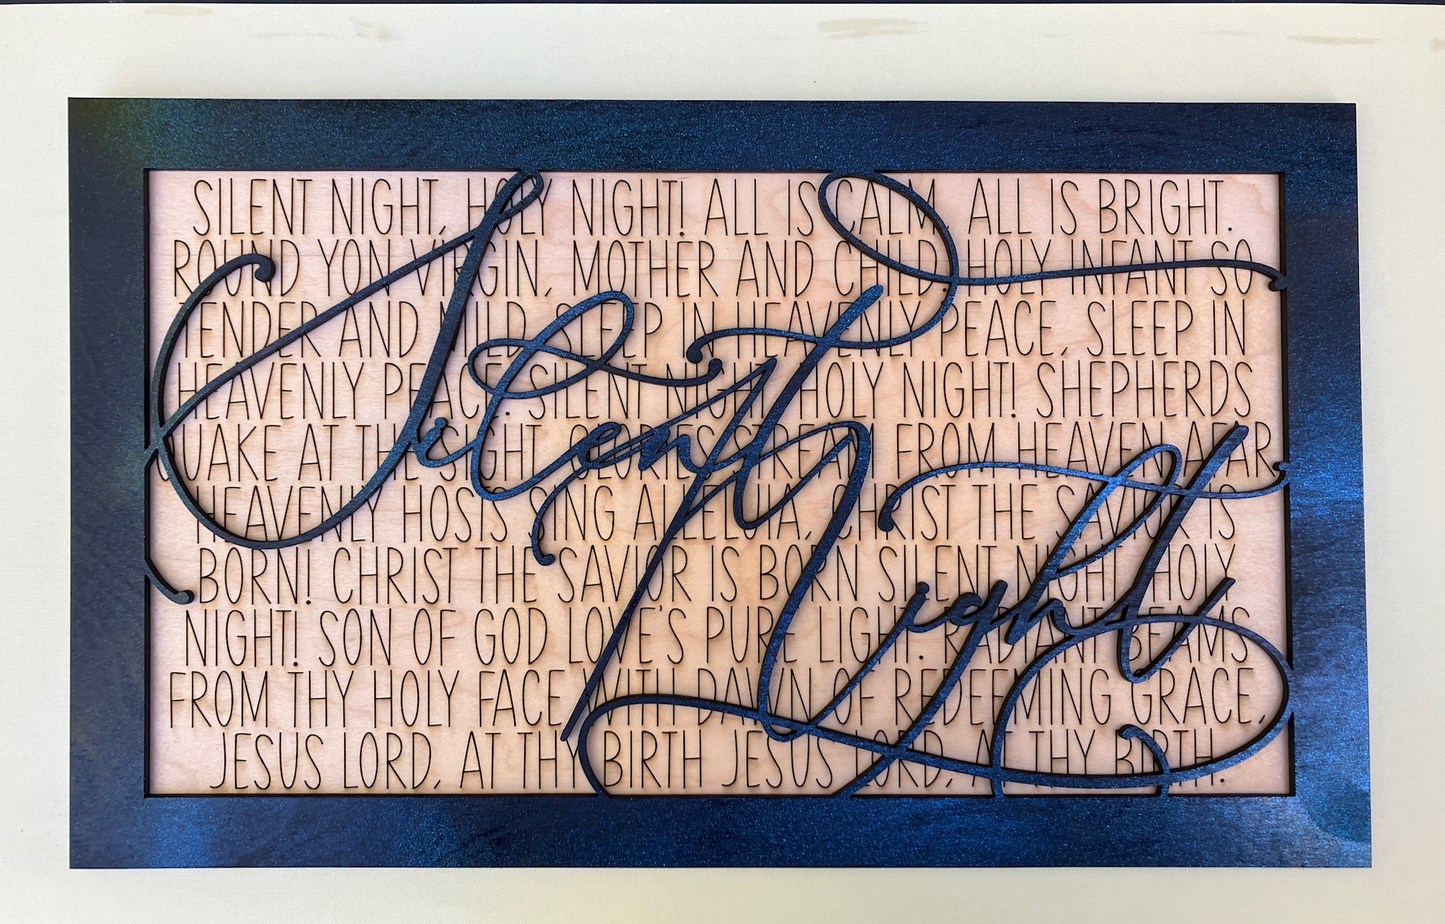 SILENT NIGHT, HOLY NIGHT! ALL IS CALM, ALL IS BRIGHT.
ROUND YON VIRGIN, MOTHER AND CHILD. HOLY INFANT SO
TENDER AND MILD, SLEEP IN HEAVENLY PEACE, SLEEP IN
HEAVENLY PEACE. SILENT NIGHT, HOLY NIGHT! SHEPHERDS
QUAKE AT THE SIGHT. GLORIES STREAM FROM HEAVEN AFAR
HEAVENLY HOSTS SING ALLELUIA, CHRIST THE SAVIOR IS
BORN! CHRIST THE SAVIOR IS BORN SILENT NIGHT, HOLY
NIGHT! SON OF GOD LOVE'S PURE LIGHT. RADIANT BEAMS
FROM THY HOLY FACE WITH DAWN OF REDEEMING GRACE,
JESUS LORD, AT THY BIRTH JESUS LORD, AT THY BIRTH.
Silent
Night